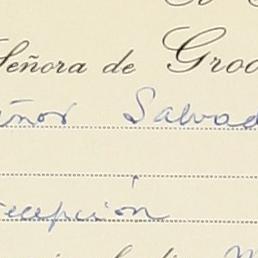 Señora de Groo
eñor Salvad
recepción